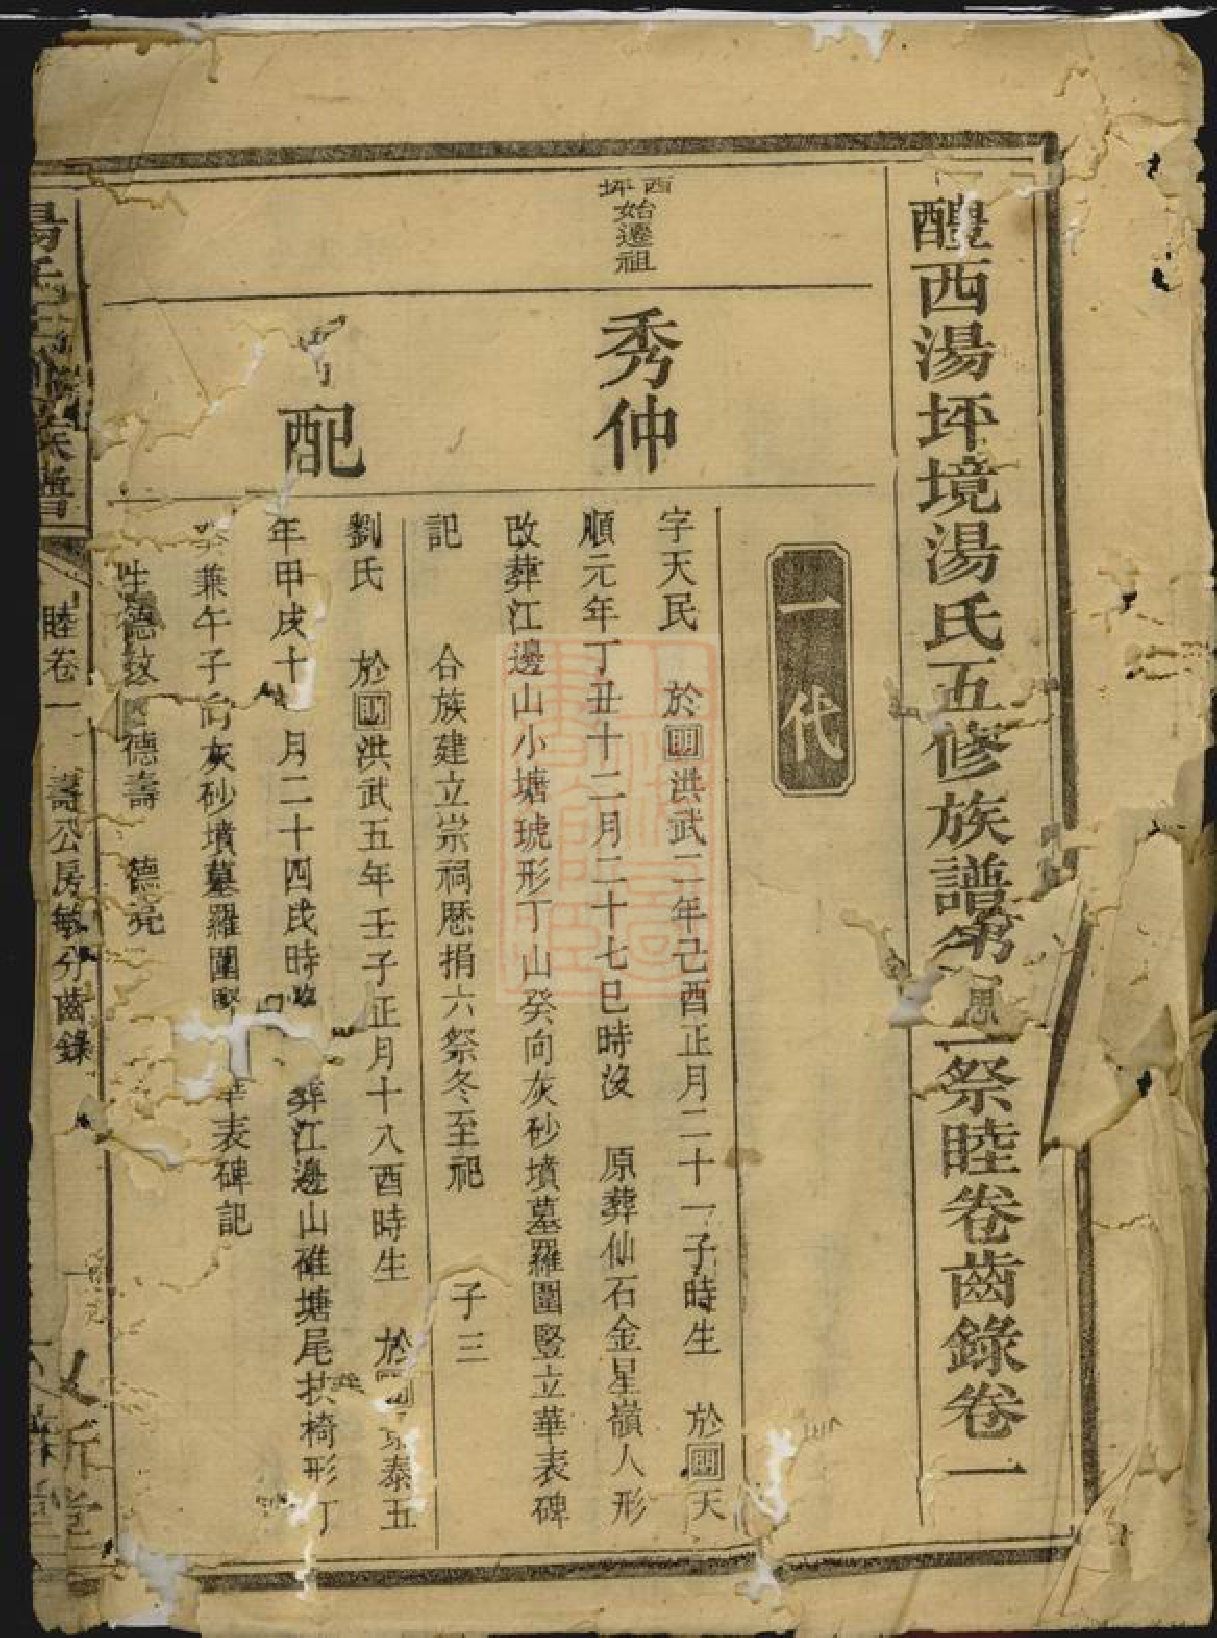 醴西湯坪境湯氏五修族譜第二祭睦卷齒錄卷一
一代
西坪始遷祖
秀仲
字天民 於明洪武二年己酉正月二十一子時生 於明天
順元年丁丑十二月二十七巳時沒 原葬仙石金星嶺人形
改葬江邊山小塘琥形丁山癸向灰砂墳墓羅圍豎立華表碑
記 合族建立崇祠歷捐六祭冬至祀 子三
配
劉氏 於明洪武五年壬子正月十八酉時生 於明景泰五
年甲戌十 月二十四戌時 葬江邊山碓塘尾扶椅形丁
癸兼午子向灰砂墳墓羅圍豎 華表碑記
生德敏 德壽 德亮
湯氏 族譜
睦卷一
壽公房敏分齒錄
新堂